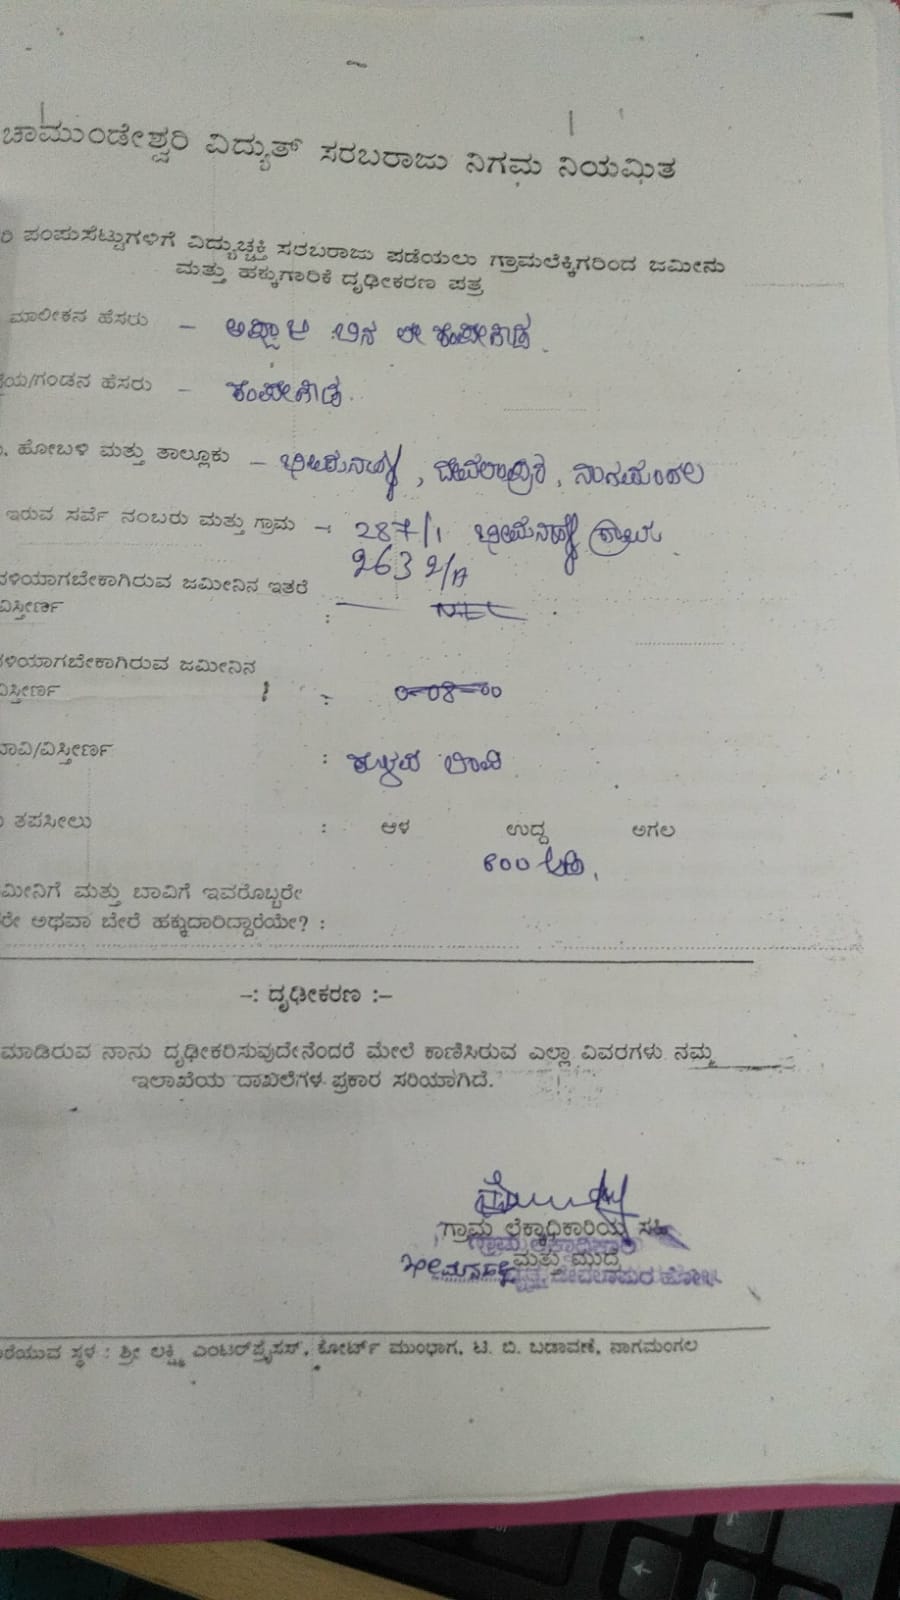 ಚಾಮುಂಡೇಶ್ವರಿ ವಿದ್ಯುತ್ ಸರಬರಾಜು ನಿಗಮ ನಿಯಮಿತ
ಪಂಪುಸೆಟ್ಟುಗಳಿಗೆ ವಿದ್ಯುಚ್ಛಕ್ತಿ ಸರಬರಾಜು ಪಡೆಯಲು ಗ್ರಾಮಲೆಕ್ಕಿಗರಿಂದ ಜಮೀನು
ಮತ್ತು ಹಕ್ಕುಗಾರಿಕೆ ದೃಢೀಕರಣ ಪತ್ರ
ಮಾಲೀಕನ ಹೆಸರು – ಬಿನ್ ಲೇ ಕೆಂಪೇಗೌಡ
ಯ/ಗಂಡನ ಹೆಸರು – ಕೆಂಪೇಗೌಡ
ಹೋಬಳಿ ಮತ್ತು ತಾಲ್ಲೂಕು – ಭೀಮನಹಳ್ಳಿ, ದೇವಲಾಪುರ, ನಾಗಮಂಗಲ
ಇರುವ ಸರ್ವೆ ನಂಬರು ಮತ್ತು ಗ್ರಾಮ – 287/1 ಭೀಮನಹಳ್ಳಿ ಗ್ರಾಮ
263 2/A
ಳಿಯಾಗಬೇಕಾಗಿರುವ ಜಮೀನಿನ ಇತರೆ
ವಿಸ್ತೀರ್ಣ :
ಳಿಯಾಗಬೇಕಾಗಿರುವ ಜಮೀನಿನ
ವಿಸ್ತೀರ್ಣ : 0-08-00
ಬಾವಿ/ವಿಸ್ತೀರ್ಣ : ಕೊಳವೆ ಬಾವಿ
ತಪಸೀಲು : ಆಳ ಉದ್ದ ಅಗಲ
೮೦೦ ಅಡಿ.
ಮೀನಿಗೆ ಮತ್ತು ಬಾವಿಗೆ ಇವರೊಬ್ಬರೇ
ರೇ ಅಥವಾ ಬೇರೆ ಹಕ್ಕುದಾರಿದ್ದಾರೆಯೇ? :
–: ದೃಢೀಕರಣ :–
ಮಾಡಿರುವ ನಾನು ದೃಢೀಕರಿಸುವುದೇನೆಂದರೆ ಮೇಲೆ ಕಾಣಿಸಿರುವ ಎಲ್ಲಾ ವಿವರಗಳು ನಮ್ಮ
ಇಲಾಖೆಯ ದಾಖಲೆಗಳ ಪ್ರಕಾರ ಸರಿಯಾಗಿದೆ.
ಗ್ರಾಮ ಲೆಕ್ಕಾಧಿಕಾರಿಯ ಸಹಿ
ಮತ್ತು ಮುದ್ರೆ
ಭೀಮನಹಳ್ಳಿ ವೃತ್ತ ದೇವಲಾಪುರ ಹೋಬಳಿ
ರೆಯುವ ಸ್ಥಳ : ಶ್ರೀ ಲಕ್ಷ್ಮಿ ಎಂಟರ್‌ಪ್ರೈಸಸ್, ಕೋರ್ಟ್ ಮುಂಭಾಗ, ಟಿ. ಬಿ. ಬಡಾವಣೆ, ನಾಗಮಂಗಲ